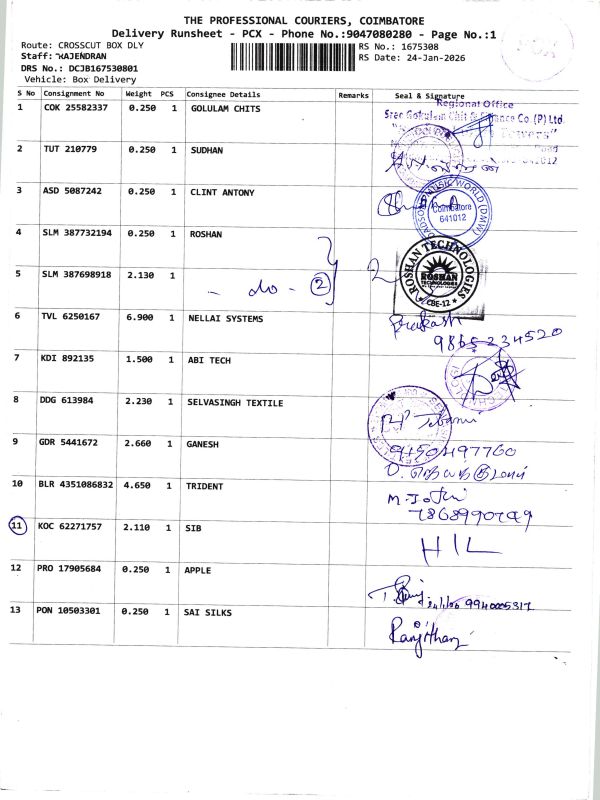 THE PROFESSIONAL COURIERS, COIMBATORE
Delivery Runsheet - PCX - Phone No.:9047080280 - Page No.:1
Route: CROSSCUT BOX DLY
RS No.: 1675308
Staff: RAJENDRAN
RS Date: 24-Jan-2026
DRS No.: DCJB167530801
Vehicle: Box Delivery
S No Consignment No Weight PCS Consignee Details Remarks Seal & Signature
1 COK 25582337 0.250 1 GOLULAM CHITS
Regional Office
Sree Gokulam Chit & Finance Co. (P) Ltd
Towers"
641012
2 TUT 210779 0.250 1 SUDHAN
3 ASD 5087242 0.250 1 CLINT ANTONY
DADSON MUSIC WORLD (DMW)
Coimbatore
641012
4 SLM 387732194 0.250 1 ROSHAN
5 SLM 387698918 2.130 1
- do - 2
2
ROSHAN TECHNOLOGIES
ROSHAN
TECHNOLOGIES
CBE-12
6 TVL 6250167 6.900 1 NELLAI SYSTEMS
Prakash
9865234520
7 KDI 892135 1.500 1 ABI TECH
8 DDG 613984 2.230 1 SELVASINGH TEXTILE
9 GDR 5441672 2.660 1 GANESH
9150497760
10 BLR 4351086832 4.650 1 TRIDENT
M. Jothi
7868990749
11 KOC 62271757 2.110 1 SIB
H I L
12 PRO 17905684 0.250 1 APPLE
24/1/26 9940005317
13 PON 10503301 0.250 1 SAI SILKS
Ranjitham